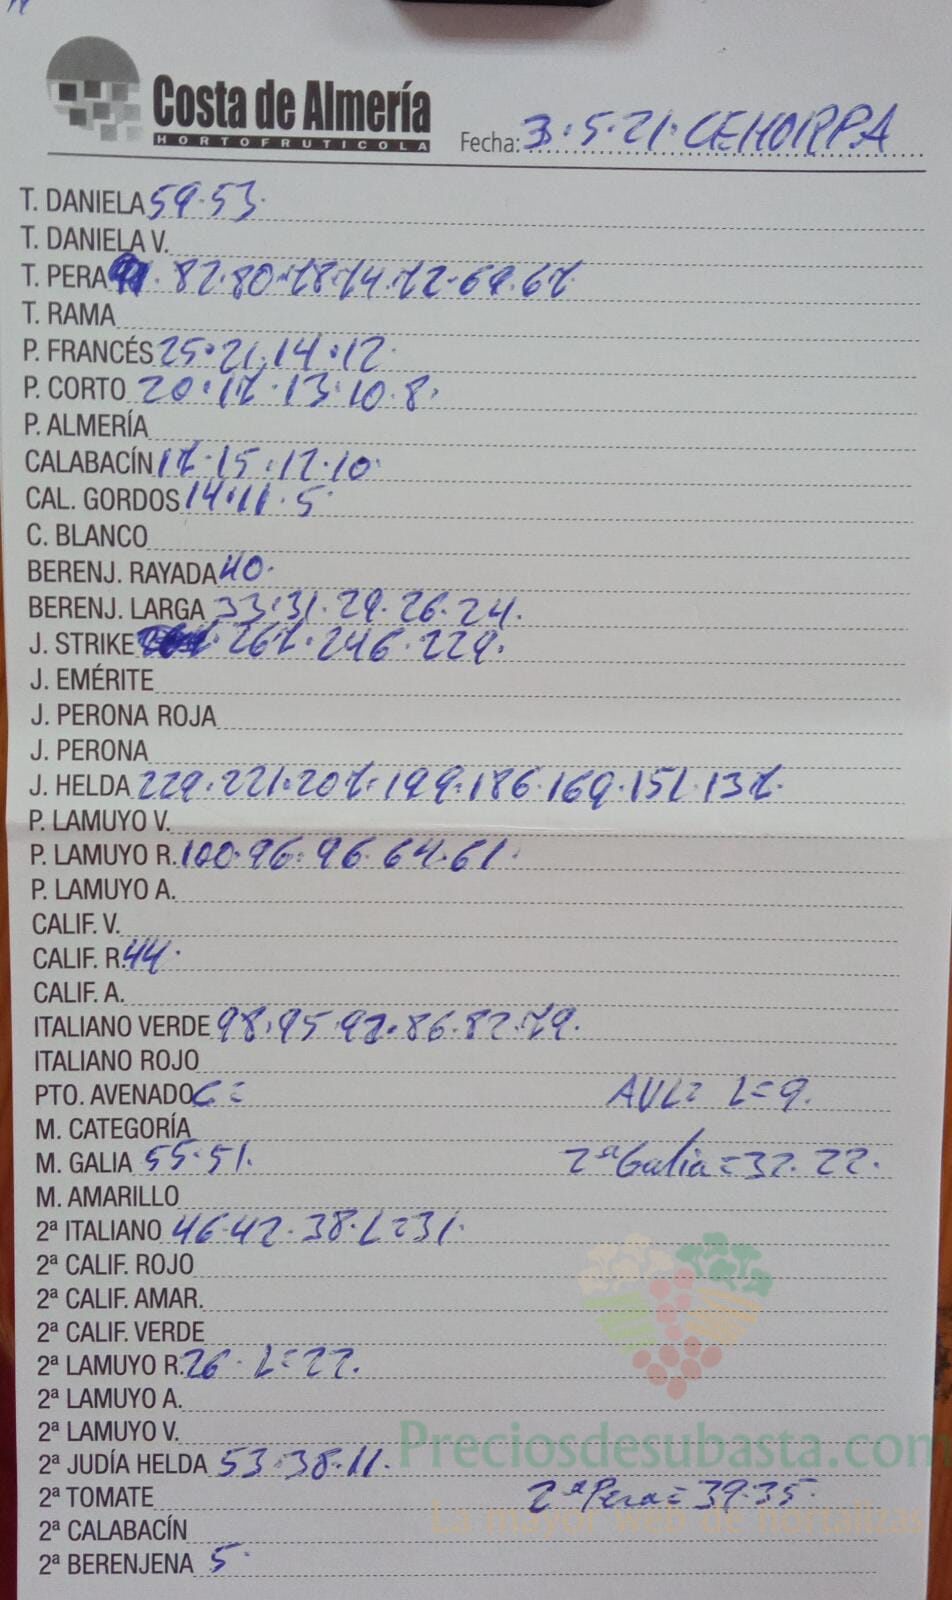 Costa de Almería
HORTOFRUTICOLA
Fecha: 3.5.21. CEHORPA
T. DANIELA 59.53.
T. DANIELA V.
T. PERA . 82.80.78.74.72.69.67.
T. RAMA
P. FRANCÉS 25.21.14.12.
P. CORTO 20.17.13.10.8.
P. ALMERÍA
CALABACÍN 17.15.12.10.
CAL. GORDOS 14.11.5.
C. BLANCO
BERENJ. RAYADA 40.
BERENJ. LARGA 33.31.29.26.24.
J. STRIKE . 267.246.229.
J. EMÉRITE
J. PERONA ROJA
J. PERONA
J. HELDA 229.221.207.199.186.169.151.137.
P. LAMUYO V.
P. LAMUYO R. 100.96.96.64.61.
P. LAMUYO A.
CALIF. V.
CALIF. R. 44.
CALIF. A.
ITALIANO VERDE 98.95.92.86.82.79.
ITALIANO ROJO
PTO. AVENADO C= AVL= L=9.
M. CATEGORÍA
M. GALIA 55.51. 2ª Galia=32.22.
M. AMARILLO
2ª ITALIANO 46.42.38.L=31.
2ª CALIF. ROJO
2ª CALIF. AMAR.
2ª CALIF. VERDE
2ª LAMUYO R. 26. L=22.
2ª LAMUYO A.
2ª LAMUYO V.
Preciosdesubasta.com
2ª JUDÍA HELDA 53.38.11.
2ª TOMATE 2ª Pera=39.35.
La mayor web de hortalizas
2ª CALABACÍN
2ª BERENJENA 5.